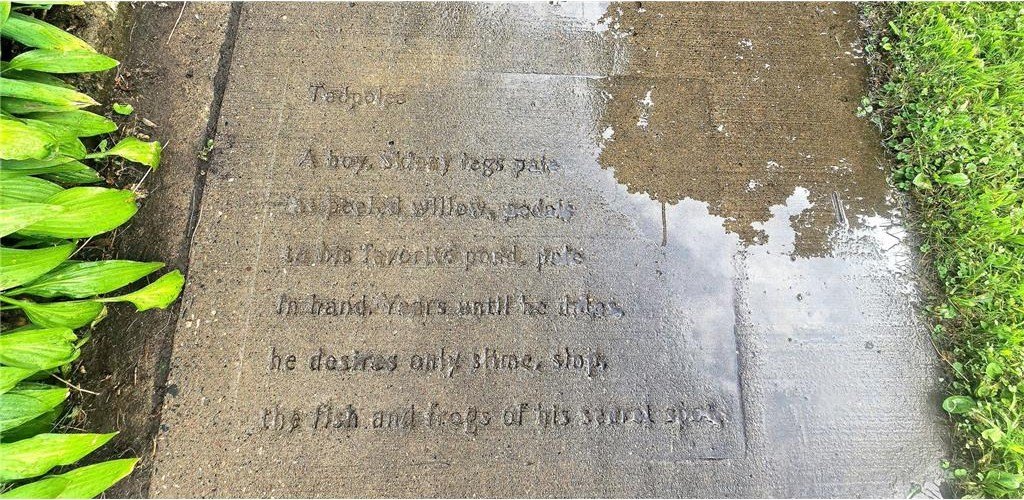 Tadpoles
A boy, skinny legs pale
as peeled willow, pedals
to his favorite pond, pole
in hand. Years until he dates,
he desires only slime, slop,
the fish and frogs of his secret spot.